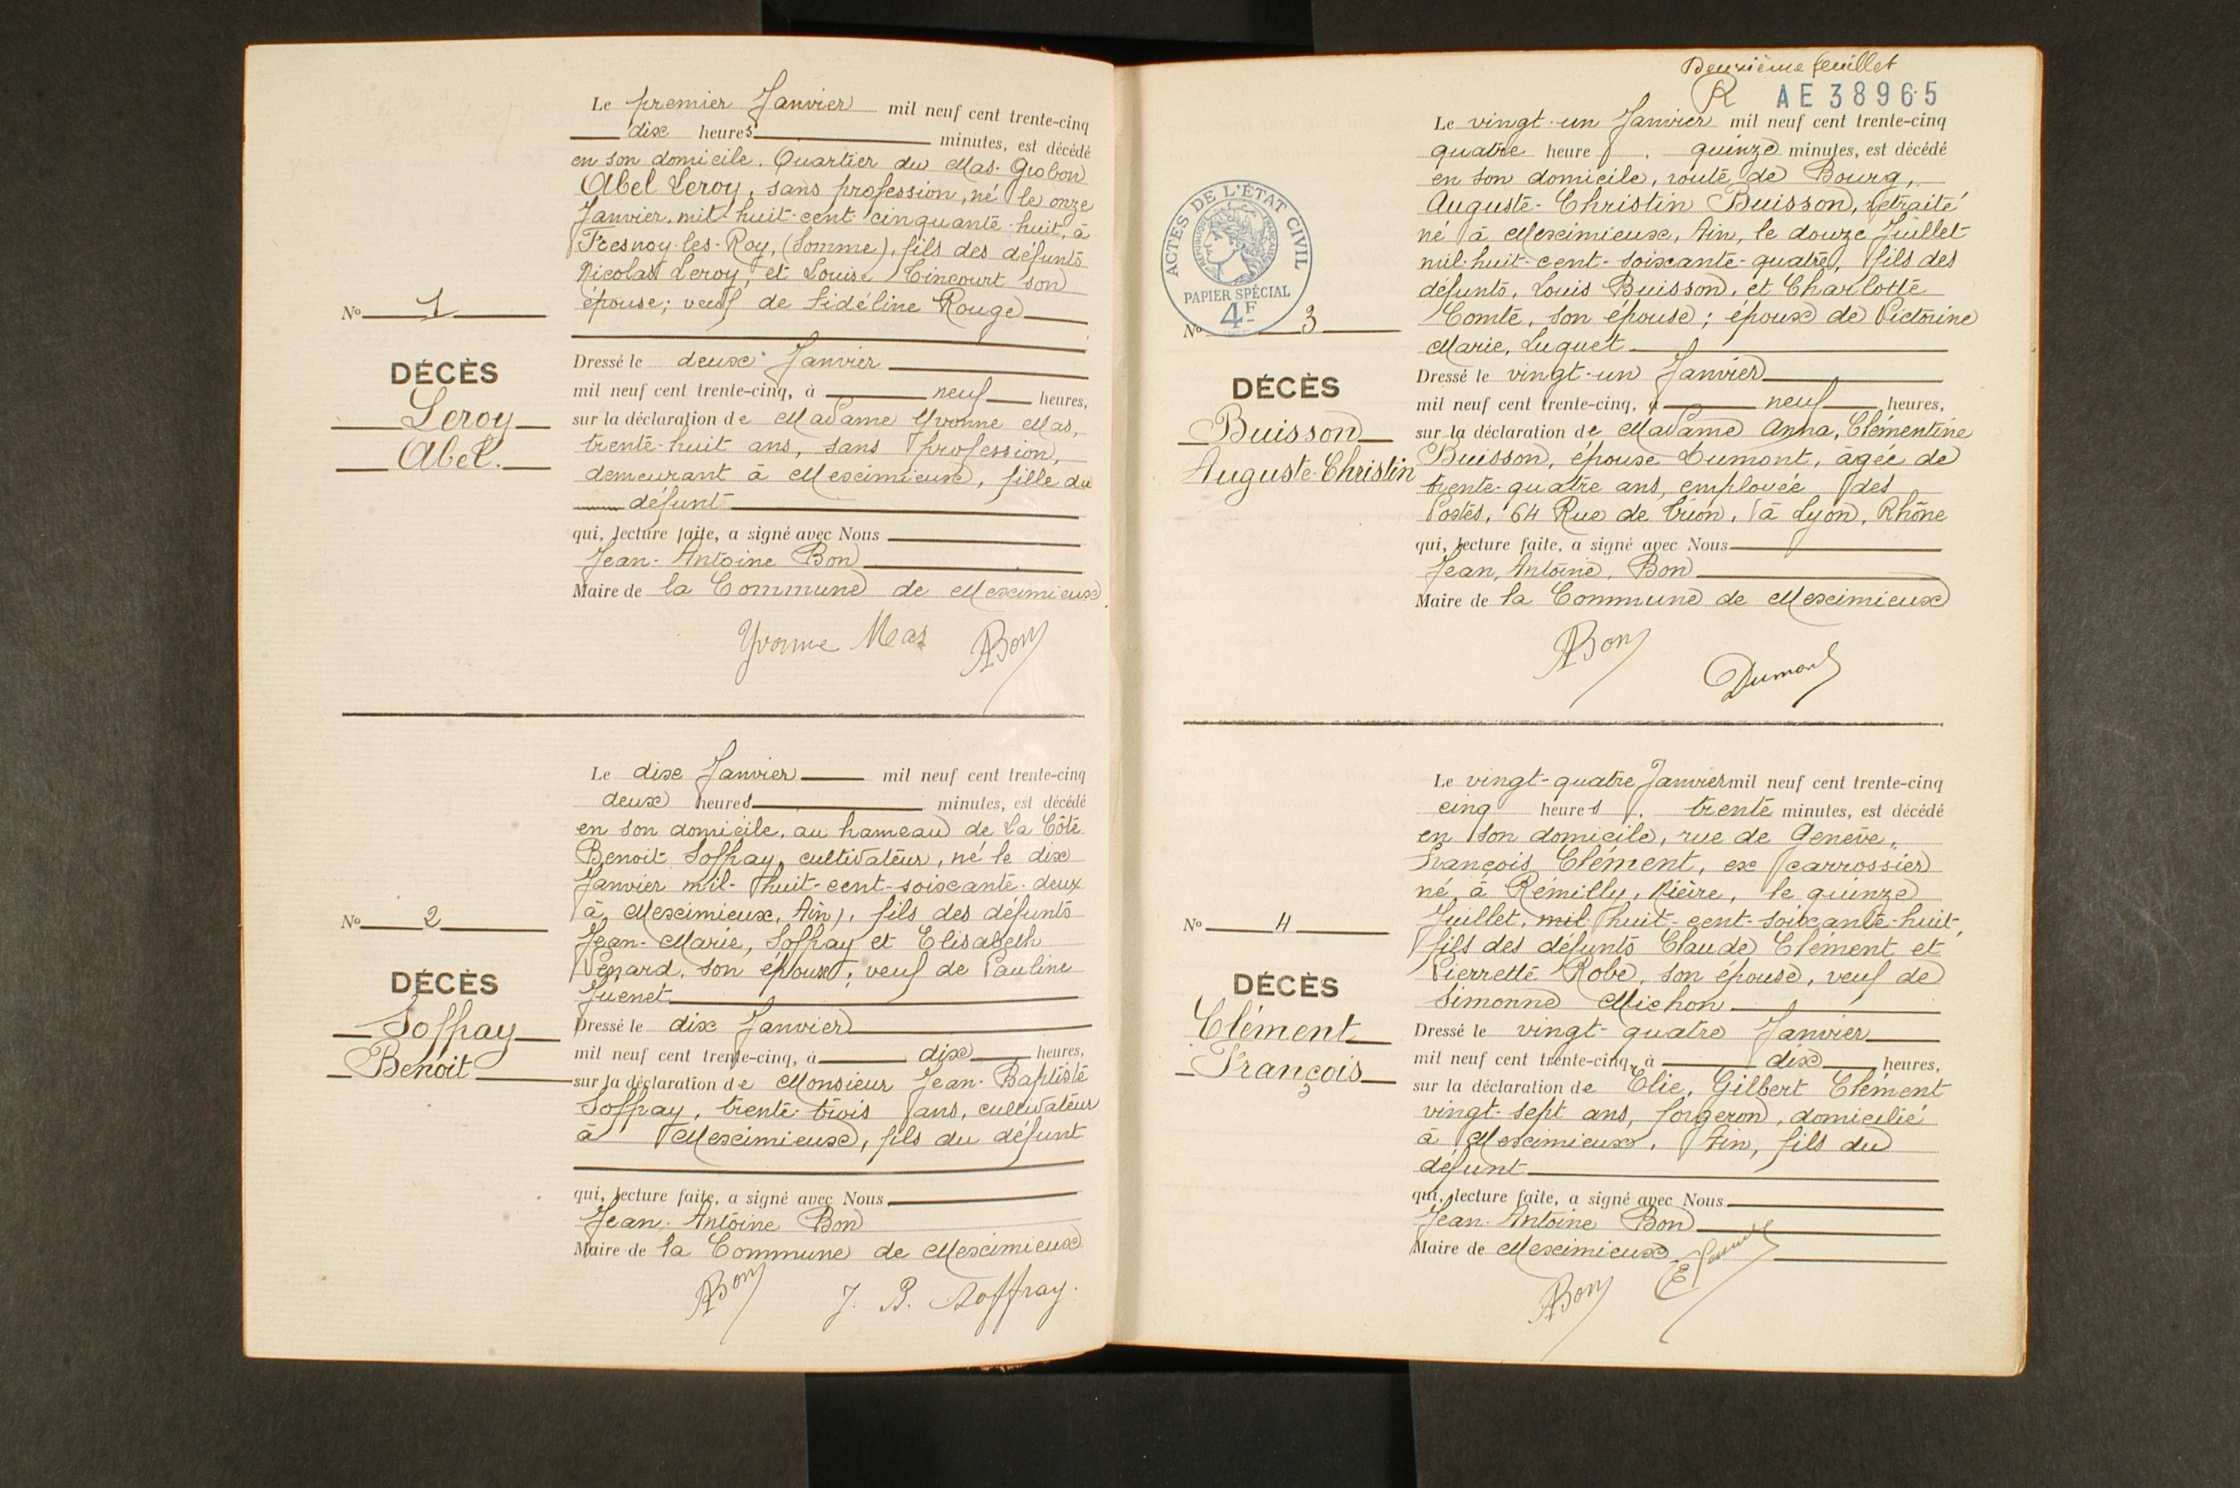 Le premier Janvier mil neuf cent trente-cinq
dix heures minutes, est décédé
en son domicile. Quartier du Mas-Grobon
Abel Leroy, sans profession, né le onze
Janvier, mil-huit-cent-cinquante-huit, à
Fresnoy-les-Roy, (Somme), fils des défunts
Nicolas Leroy, et Louise Cincourt son
épouse; veuf de Fidéline Rouge
No 1
DÉCÈS
Leroy
Abel.
Dressé le deux Janvier
mil neuf cent trente-cinq, à neuf heures,
sur la déclaration de Madame Yvonne Mas,
trente-huit ans, sans profession,
demeurant à Meximieux, fille du
défunt
qui, lecture faite, a signé avec Nous
Jean-Antoine Bon
Maire de la Commune de Meximieux.
Yvonne Mas ABon
Le dix Janvier mil neuf cent trente-cinq
deux heures minutes, est décédé
en son domicile, au hameau de La Côte
Benoit Soffray, cultivateur, né le dix
Janvier mil-huit-cent-soixante-deux
à Meximieux, Ain), fils des défunts
Jean-Marie, Soffray et Elisabeth
Venard, son épouse; veuf de Pauline
Juenet
No 2
DÉCÈS
Soffray
Benoit
Dressé le dix Janvier
mil neuf cent trente-cinq, à dix heures,
sur la déclaration de Monsieur Jean-Baptiste
Soffray, trente-trois ans, cultivateur
à Meximieux, fils du défunt
qui, lecture faite, a signé avec Nous
Jean-Antoine Bon
Maire de la Commune de Meximieux
ABon J. B. Soffray.
Deuxième feuillet
R AE 38965
ACTES DE L'ÉTAT CIVIL
RÉPUBLIQUE FRANÇAISE
PAPIER SPÉCIAL
4F
Le vingt-un Janvier mil neuf cent trente-cinq
quatre heures, quinze minutes, est décédé
en son domicile, route de Bourg,
Auguste-Christin Buisson, retraité
né à Meximieux, Ain, le douze Juillet-
mil-huit-cent-soixante-quatre, fils des
défunts, Louis Buisson, et Charlotte
Comte, son épouse; époux de Victorine
Marie, Luquet
No 3
DÉCÈS
Buisson
Auguste-Christin
Dressé le vingt-un Janvier
mil neuf cent trente-cinq, à neuf heures,
sur la déclaration de Madame Anna, Clémentine
Buisson, épouse Dumont, agée de
trente-quatre ans, employée des
Postes, 64 Rue de Trion, à Lyon, Rhône
qui, lecture faite, a signé avec Nous
Jean, Antoine, Bon
Maire de la Commune de Meximieux
ABon
Dumont
Le vingt-quatre Janvier mil neuf cent trente-cinq
cinq heures, trente minutes, est décédé
en son domicile, rue de Genève,
François Clément, ex carrossier
né à Rémilly, Nièvre, le quinze
Juillet, mil-huit-cent-soixante-huit,
fils des défunts Claude Clément et
Pierrette Robe, son épouse, veuf de
Simonne Michon
No 4
DÉCÈS
Clément
François
Dressé le vingt-quatre Janvier
mil neuf cent trente-cinq, à dix heures,
sur la déclaration de Elie, Gilbert Clément
vingt-sept ans, forgeron, domicilié
à Meximieux, Ain, fils du
défunt
qui, lecture faite, a signé avec Nous
Jean-Antoine Bon
Maire de Meximieux
ABon